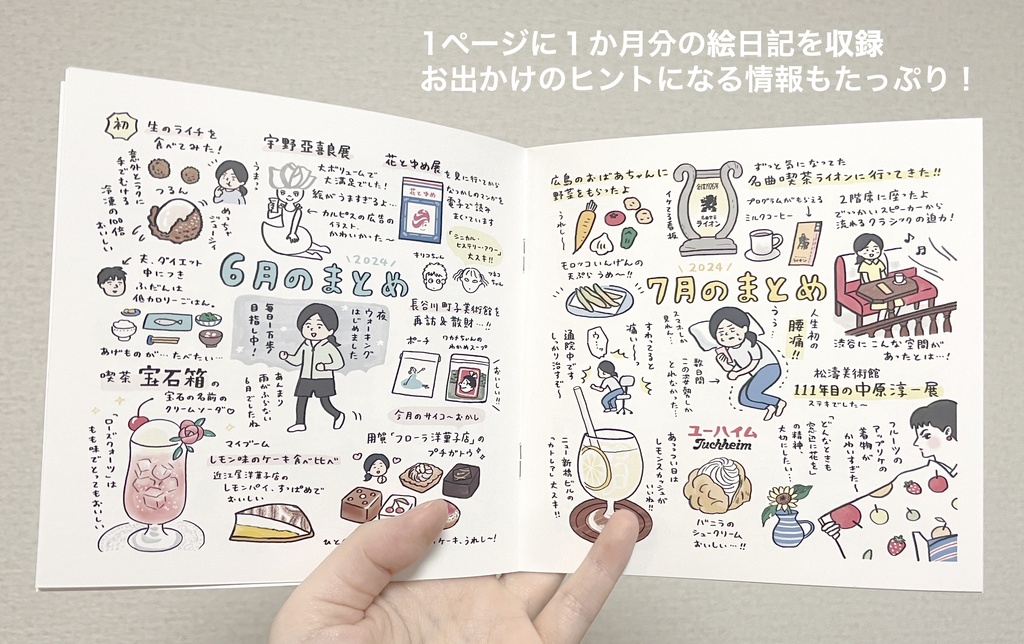 1ページに1か月分の絵日記を収録
お出かけのヒントになる情報もたっぷり！
初
生のライチを
食べてみた！
意外とラクに
手でむける
冷凍の100倍
おいしい
つるん
うまっ
めっちゃ
ジューシィ
宇野亞喜良展
大ボリュームで
大満足でした！
絵がうますぎるよ…
←カルピスの広告の
イラスト、
かわいかった〜
花とゆめ展を見に行ってから
なつかしのマンガを
電子で読み
まくています
花とゆめ
「シニカル・
ヒステリー・アワー」
大スキ!!
キリコちゃん
ツネコちゃん
2024
6月のまとめ
夫、ダイエット
中につき
ふだんは
低カロリーごはん。
あげものが…たべたい…
夜、
ウォーキング
はじめました
毎日1万歩
目指し中！
あんまり
雨がふらない
6月でしたね
長谷川町子美術館を
再訪&散財…!!
ポーチ
ワカナちゃんの
わかめスープ
おいしい!!
喫茶 宝石箱の
宝石の名前の
クリームソーダ♡
「ローズクォーツ」は
もも味でとってもおいしい
マイブーム
レモン味のケーキ食べ比べ
近江屋洋菓子店の
レモンパイ、すっぱめで
おいしい
今月のサイコ〜おかし
用賀「フローラ洋菓子店」の
プチガトウ
ケーキ、うれし〜！
広島のおばあちゃんに
野菜をもらったよ
うれし〜
モロッコいんげんの
天ぷらうめ〜!!
イケてる看板
名曲喫茶
cafe
ライオン
ずっと気になってた
名曲喫茶ライオンに行ってきた!!
プログラムがもらえる
ミルクコーヒー
2階席に座ったよ
でっかいスピーカーから
流れるクラシックの迫力！
渋谷にこんな空間が
あったとは…！
2024
7月のまとめ
通院中です
しっかり治すぞ〜
すわってると
痛い…
スマホしか
見れん…
数日間
この姿勢しか
とれなかった…
うう…
人生初の
腰痛!!
松濤美術館
111年目の中原淳一展
ステキでした〜
「どんなときも
窓辺に花を」
の精神、
大切にしたい…
フルーツの
アップリケの
着物が
かわいすぎた！
ニュー新橋ビルの
「カトレア」大スキ!!
あっつい日は
レモンスカッシュが
いいね!!
ユーハイム
Juchheim
バニラの
シュークリーム
おいしい…!!